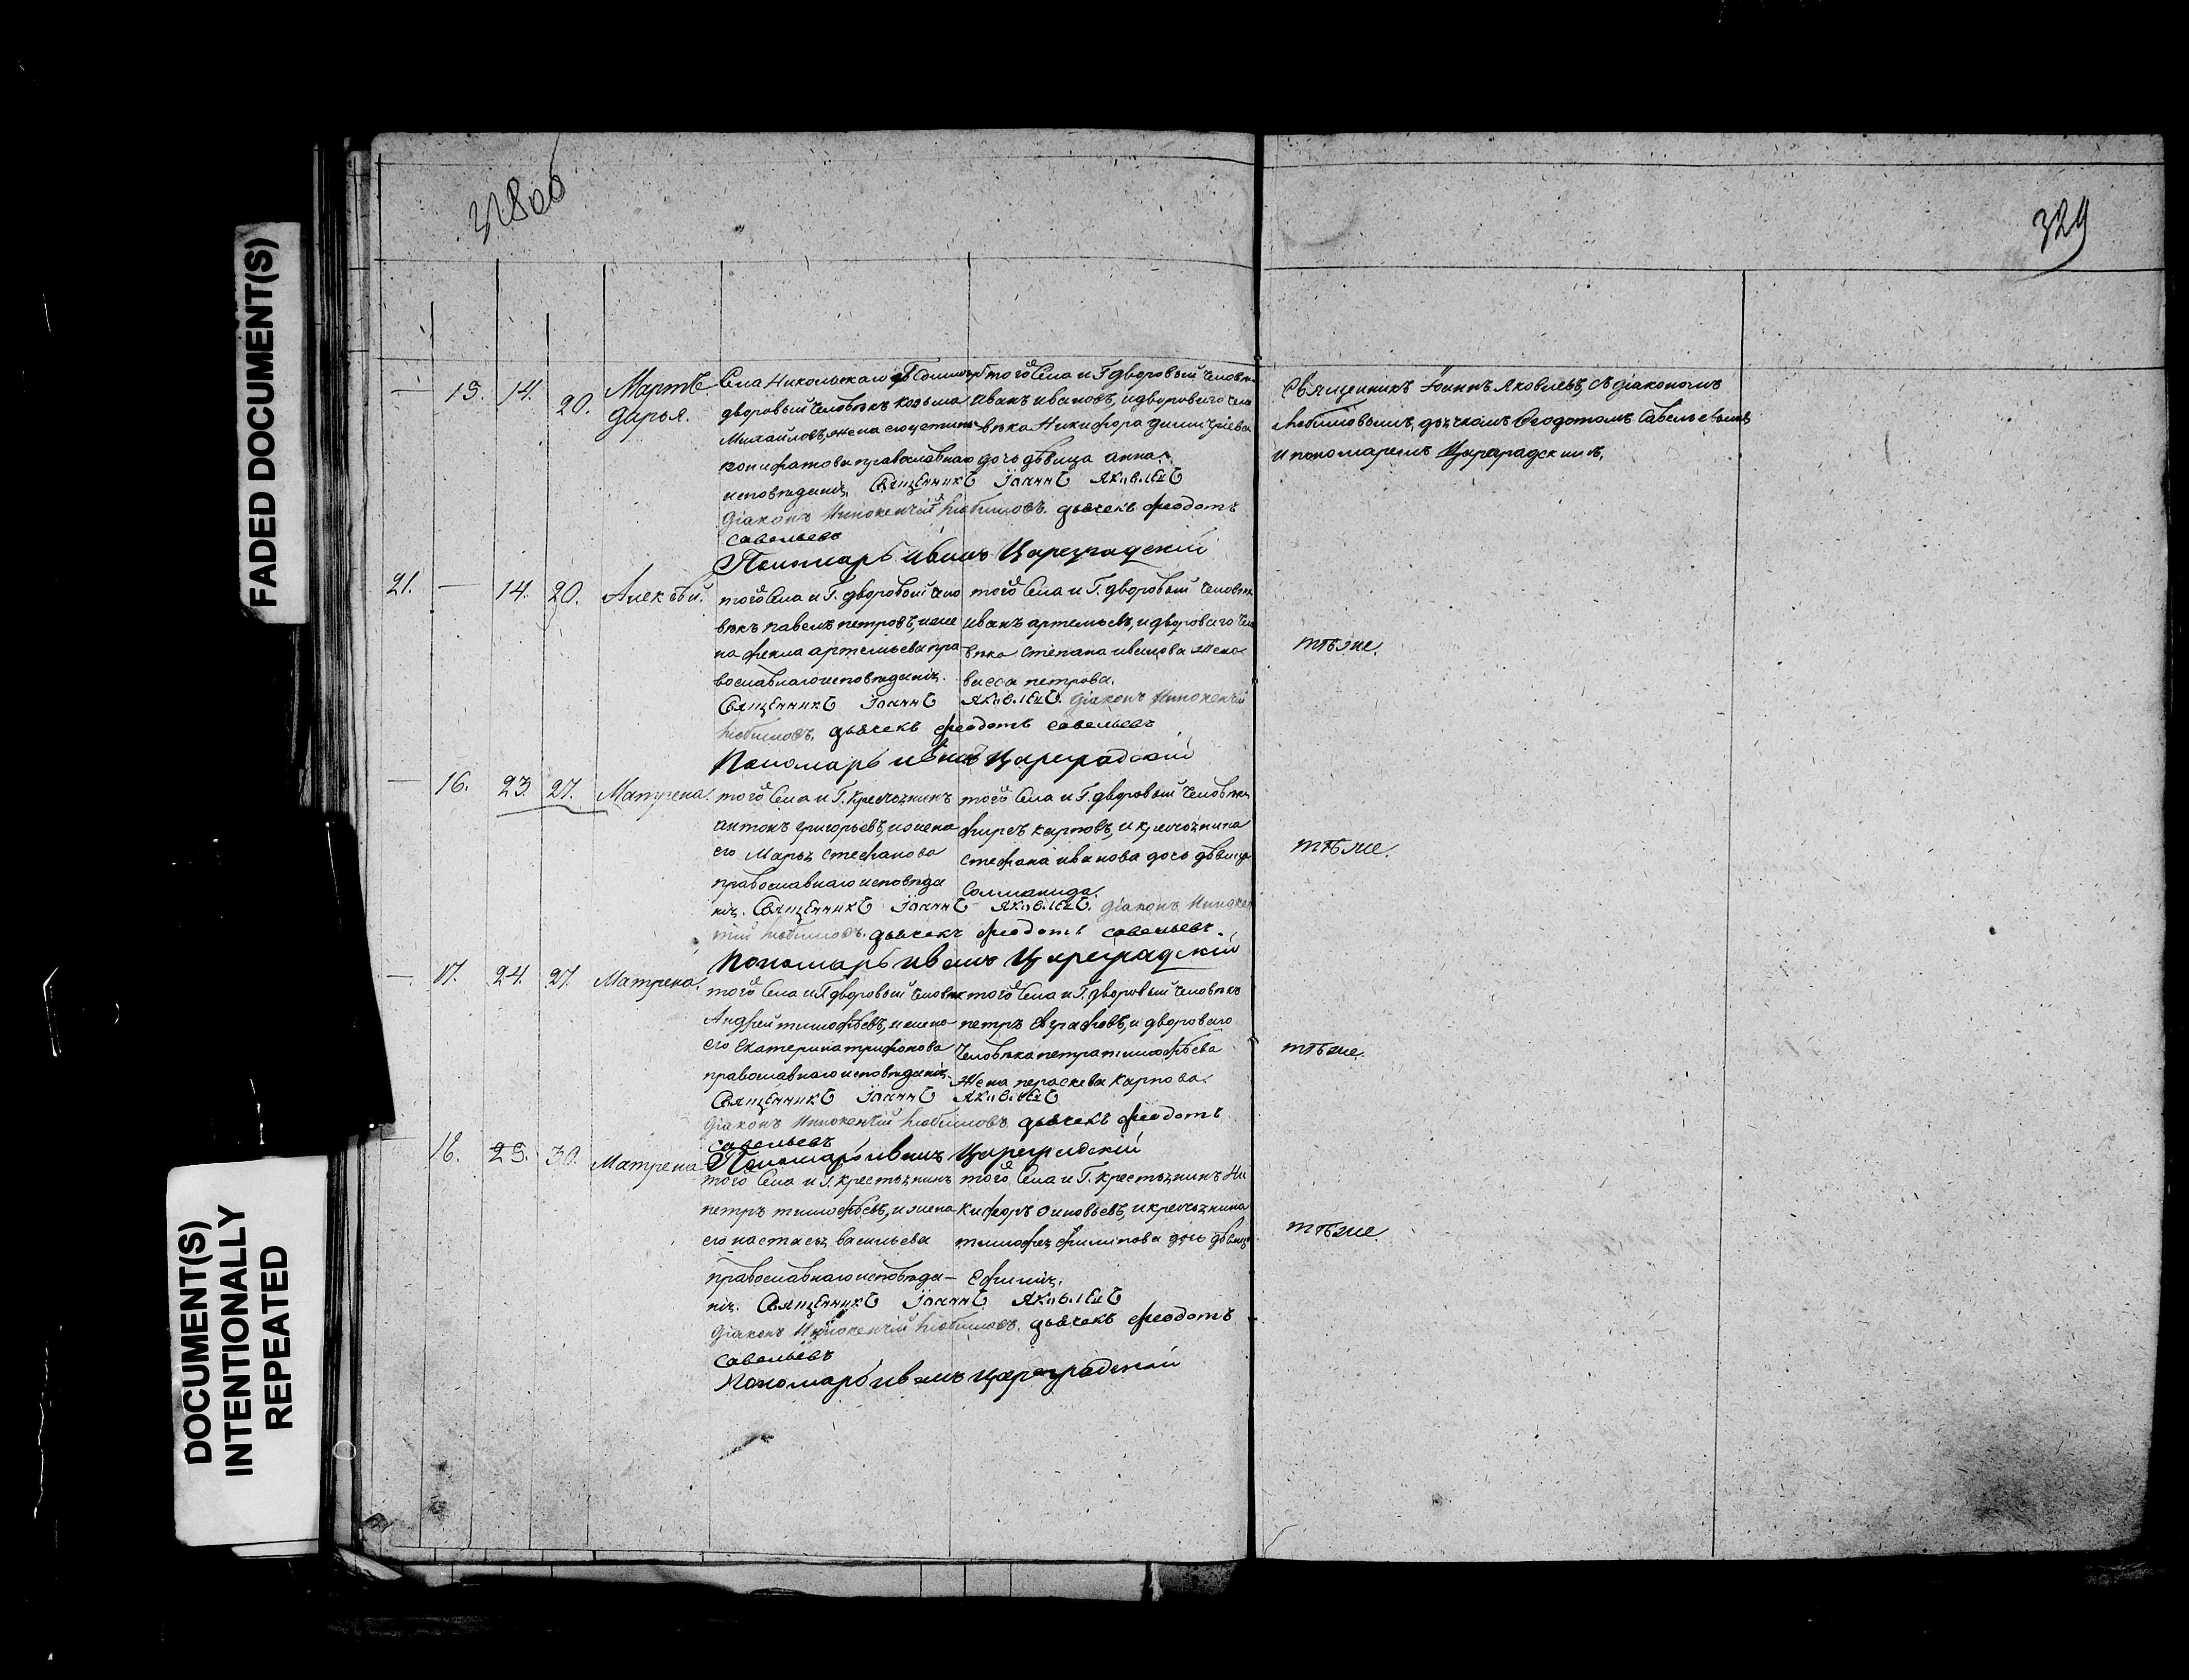 FADED DOCUMENT(S)
DOCUMENT(S)
INTENTIONALLY
REPEATED
329
Мартъ
— 15. 14. 20. Дарья.
Села Никольскаго
дворовый человѣкъ козьма
Михайловъ, жена его устинья
православнаго
исповѣданія. Священникъ Іоаннъ Яковлевъ
Діаконъ Иннокентій Любимовъ. дьячекъ феодотъ
савельевъ
Пономарь иванъ Цареградскій
того Села и Г. дворовый человѣкъ
иванъ ивановъ, и двороваго чело
вѣка Никифора димитріева
дочь дѣвица анна.
Священникъ Іоаннъ Яковлевъ, съ діакономъ
Любимовымъ, дьячкомъ Ѳеодотомъ Савельевымъ
и пономаремъ Цареградскимъ.
21. — 14. 20. Алексѣй.
того Села и Г. дворовый чело
вѣкъ павелъ петровъ, и же
на фекла артемьева пра
вославнаго исповѣданія.
того Села и Г. дворовый человѣкъ
иванъ артемьевъ, и двороваго чел
вѣка степана иванова жена
васса петрова.
Священникъ Іоаннъ Яковлевъ. Діаконъ Иннокентій
Любимовъ. дьячекъ феодотъ савельевъ
Пономарь иванъ Цареградскій
тѣже.
— 16. 23. 27. Матрена.
того Села и Г. крестьянинъ
антонъ григорьевъ, и жена
его Марья стефанова
православнаго исповѣда
нія. Священникъ Іоаннъ Яковлевъ. Діаконъ Иннокен
тій Любимовъ. дьячекъ феодотъ савельевъ.
Пономарь иванъ Цареградскій
того Села и Г. дворовый человѣкъ
фирсъ карповъ, и крестьянина
стефана иванова дочь дѣвица
Соломанида.
тѣже.
— 17. 24. 27. Матрена.
того Села и Г. дворовый человѣкъ
Андрей тимофѣевъ, и жена
его Екатерина трифонова
православнаго исповѣданія.
того Села и Г. дворовый человѣкъ
петръ Евграфовъ, и двороваго
человѣка петра тимофѣева
жена параскева карпова.
Священникъ Іоаннъ Яковлевъ
Діаконъ Иннокентій Любимовъ. дьячекъ феодотъ
савельевъ
Пономарь иванъ Цареградскій
тѣже.
18. 25. 30. Матрена
того Села и Г. крестьянинъ
петръ тимофѣевъ, и жена
его настасья васильева
православнаго исповѣда—
нія. Священникъ Іоаннъ Яковлевъ
Діаконъ Иннокентій Любимовъ. дьячекъ феодотъ
савельевъ
Пономарь иванъ цареградскій
того Села и Г. крестьянинъ Ни
кифоръ зиновьевъ, и крестьянина
тимофея филипова дочь дѣвица
Ефимія.
тѣже.